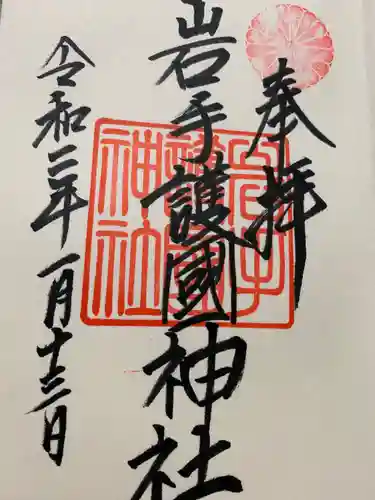 奉拝
岩手護國神社
岩手護國神社
令和二年一月十三日